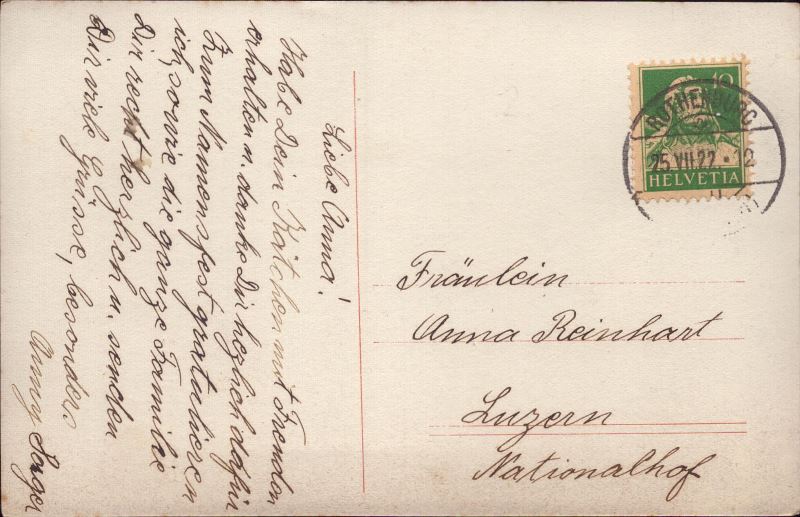 Liebe Anna!
Habe Dein Kätchen mit Freuden
erhalten u. danke Dir herzlich dafür
Zum Namensfest gratulieren
ich, sowie die ganze Familie
Dir recht herzlich u. senden
Dir viele Grüsse, besonders
Anny
10
HELVETIA
ROTHENBURG
25.VII.22.-12
Fräulein
Anna Reinhart
Luzern
Nationalhof